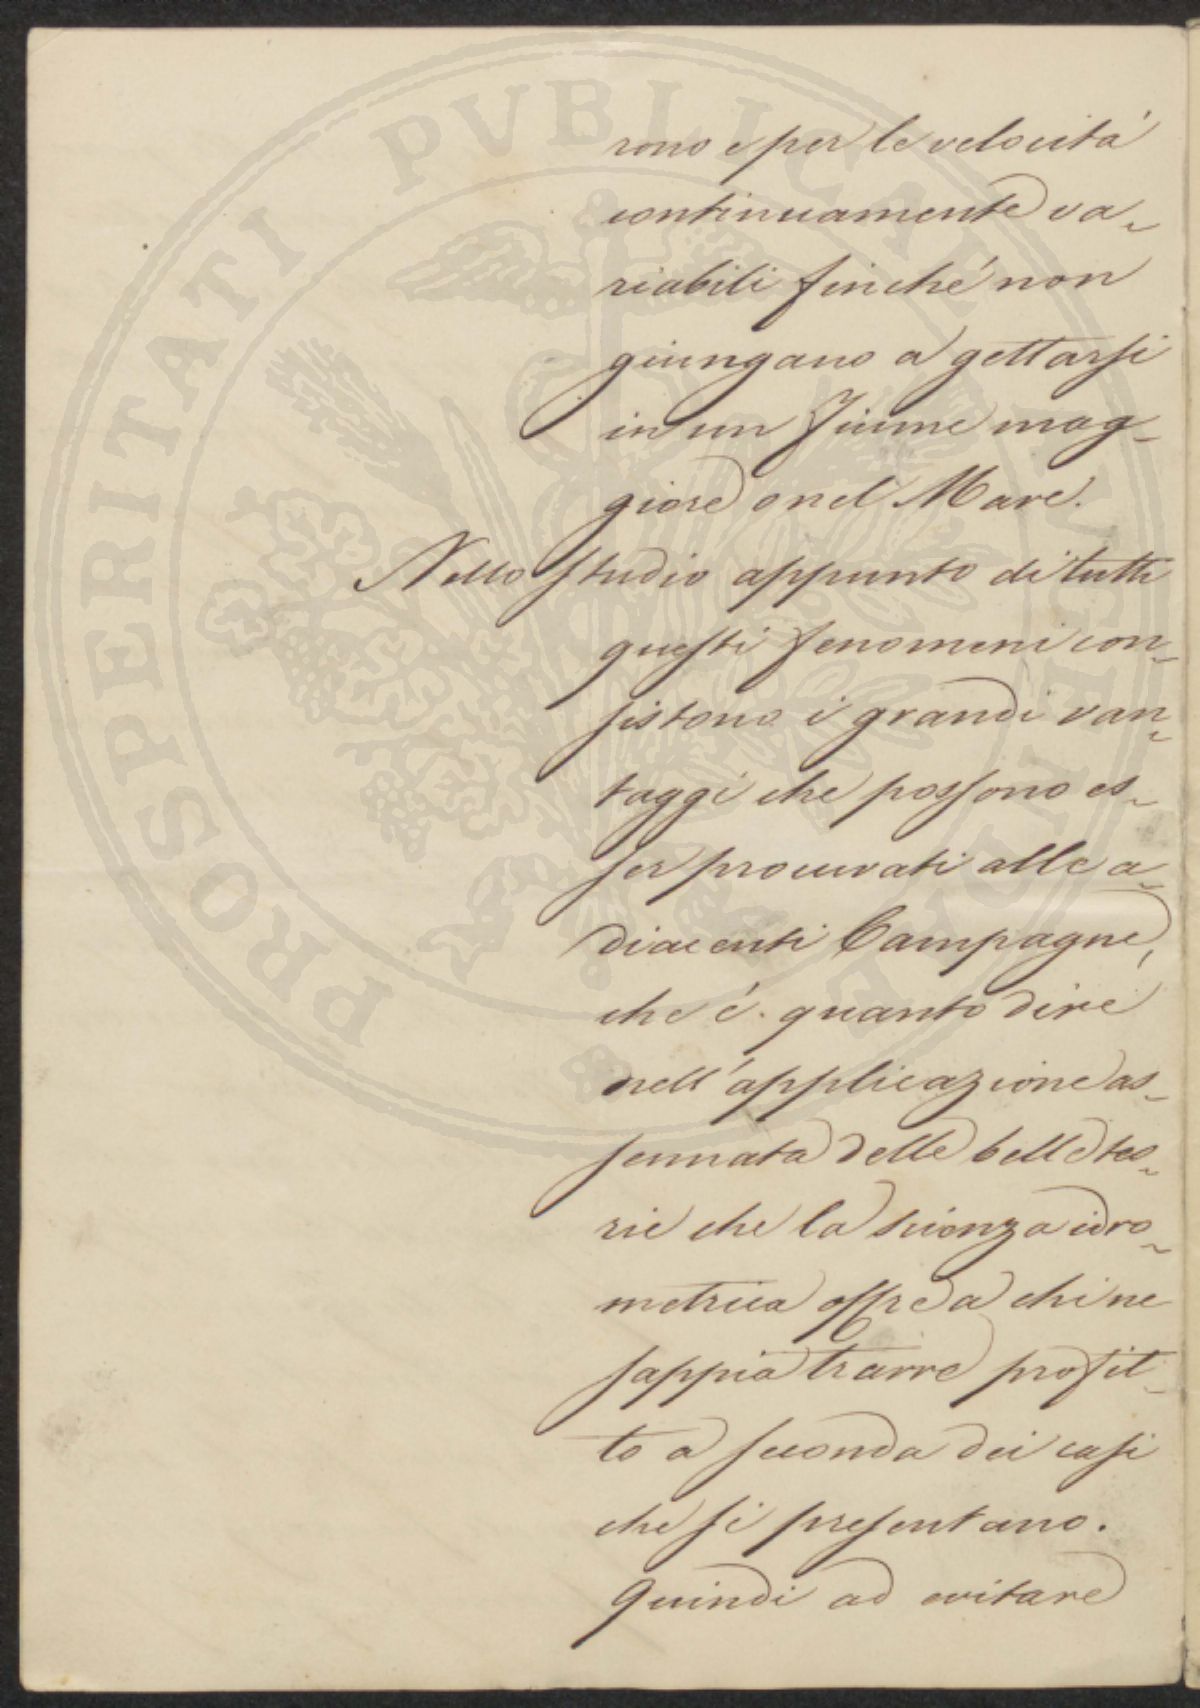 PROSPERITATI PVBLICAE AVGENDAE
rono e per le velocitá
continuamente va-
riabili finché non
giungano a gettarsi
in un Fiume mag-
giore o nel Mare.
Nello studio appunto di tutti
questi fenomeni con-
sistono i grandi van-
taggi che possono es-
ser procurati alle a-
diacenti Campagne,
che é quanto dire
nell'applicazione as-
sennata delle belle teo-
rie che la scienza idro-
metrica offre a chi ne
sappia trarre profit-
to a seconda dei casi
che si presentano.
Quindi ad evitare